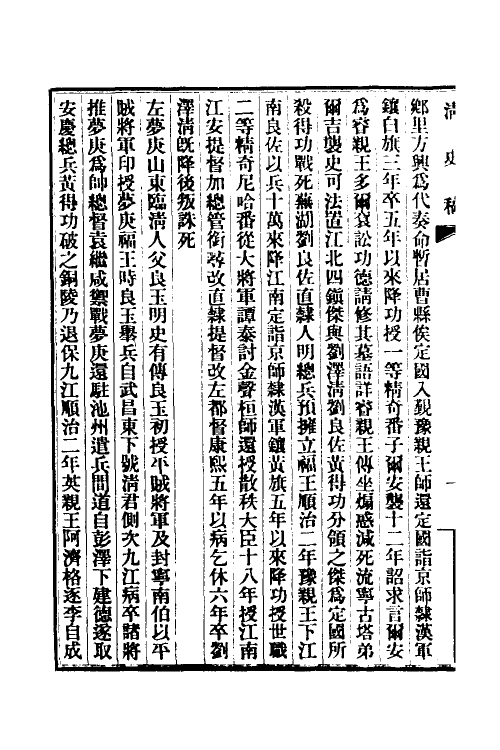 清史稿
鄉里方興爲代奏命暫居曹縣俟定國入覲豫親王師還定國詣京師隸漢軍
鑲白旗三年卒五年以來降功授一等精奇番子爾安襲十二年詔求言爾安
爲睿親王多爾袞訟功德請修其墓語詳睿親王傳坐煽惑減死流寧古塔弟
爾吉襲史可法置江北四鎭傑與劉澤淸劉良佐黃得功分領之傑爲定國所
殺得功戰死蕪湖劉良佐直隸人明總兵預擁立福王順治二年豫親王下江
南良佐以兵十萬來降江南定詣京師隸漢軍鑲黃旗五年以來降功授世職
二等精奇尼哈番從大將軍譚泰討金聲桓師還授散秩大臣十八年授江南
江安提督加總管銜尋改直隸提督改左都督康熙五年以病乞休六年卒劉
澤淸旣降後叛誅死
左夢庚山東臨淸人父良玉明史有傳良玉初授平賊將軍及封寧南伯以平
賊將軍印授夢庚福王時良玉舉兵自武昌東下號淸君側次九江病卒諸將
推夢庚爲帥總督袁繼咸禦戰夢庚還駐池州遣兵間道自彭澤下建德遂取
安慶總兵黃得功破之銅陵乃退保九江順治二年英親王阿濟格逐李自成